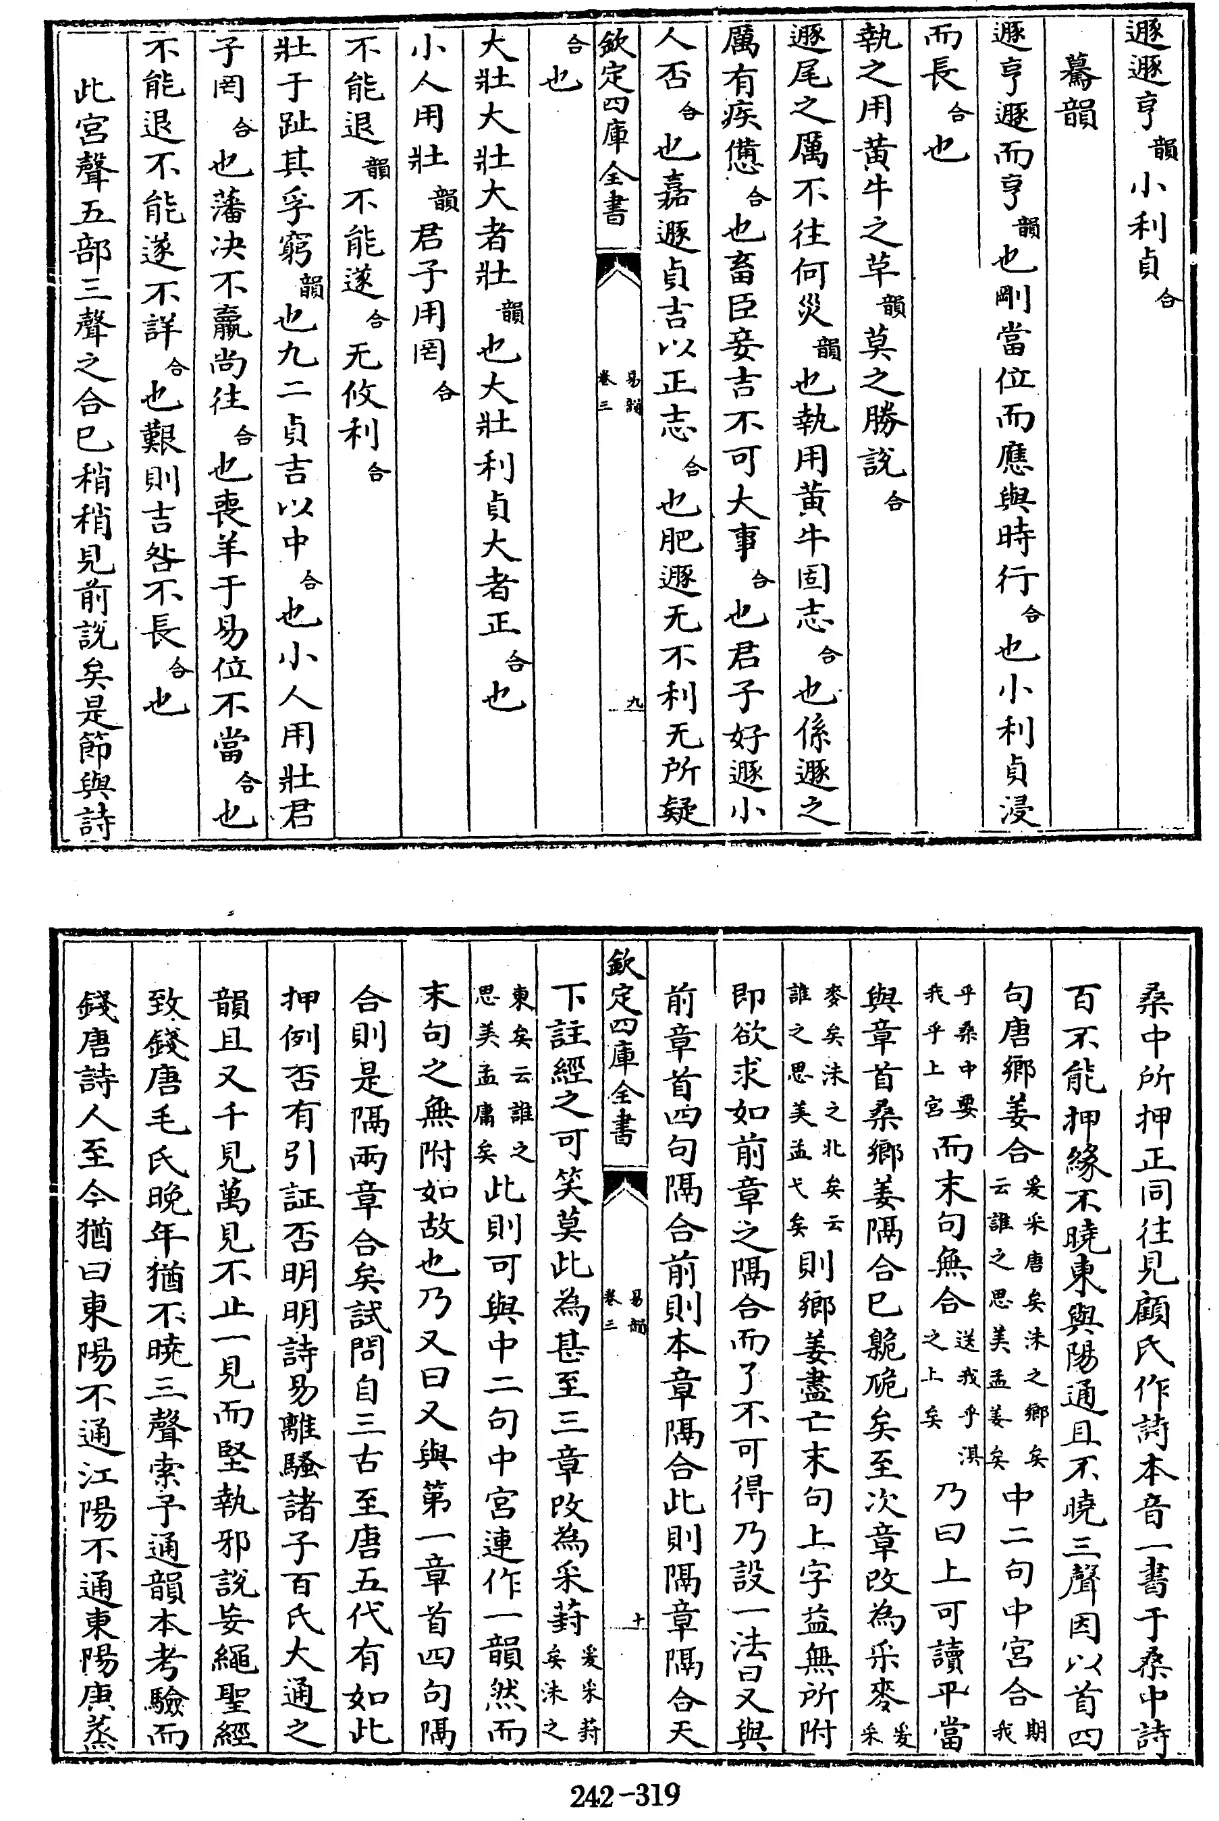 遯遯亨韻小利貞合
驀韻
遯亨遯而亨韻也剛當位而應與時行合也小利貞浸
而長合也
執之用黃牛之革韻莫之勝說合
遯尾之厲不往何災韻也執用黃牛固志合也係遯之
厲有疾憊合也畜臣妾吉不可大事合也君子好遯小
人否合也嘉遯貞吉以正志合也肥遯无不利无所疑
欽定四庫全書
易韻
卷三
九
合也
大壯大壯大者壯韻也大壯利貞大者正合也
小人用壯韻君子用罔合
不能退韻不能遂合无攸利合
壯于趾其孚窮韻也九二貞吉以中合也小人用壯君
子罔合也藩決不羸尚往合也喪羊于易位不當合也
不能退不能遂不詳合也艱則吉咎不長合也
此宮聲五部三聲之合已稍稍見前說矣是節與詩
桑中所押正同往見顧氏作詩本音一書于桑中詩
百不能押緣不曉東與陽通且不曉三聲因以首四
句唐鄉姜合爰采唐矣沬之鄉矣云誰之思美孟姜矣中二句中宮合期我
乎桑中要我乎上宮而末句無合送我乎淇之上矣乃曰上可讀平當
與章首桑鄉姜隔合已臲卼矣至次章改為采麥爰采
麥矣沬之北矣云誰之思美孟弋矣則鄉姜盡亡末句上字益無所附
即欲求如前章之隔合而了不可得乃設一法曰又與
前章首四句隔合前則本章隔合此則隔章隔合天
欽定四庫全書
易韻
卷三
十
下註經之可笑莫此為甚至三章改為采葑爰采葑矣沬之
東矣云誰之思美孟庸矣此則可與中二句中宮連作一韻然而
末句之無附如故也乃又曰又與第一章首四句隔
合則是隔兩章合矣試問自三古至唐五代有如此
押例否有引証否明明詩易離騷諸子百氏大通之
韻且又千見萬見不止一見而堅執邪說妄繩聖經
致錢唐毛氏晚年猶不曉三聲索予通韻本考驗而
錢唐詩人至今猶曰東陽不通江陽不通東陽庚蒸
242-319